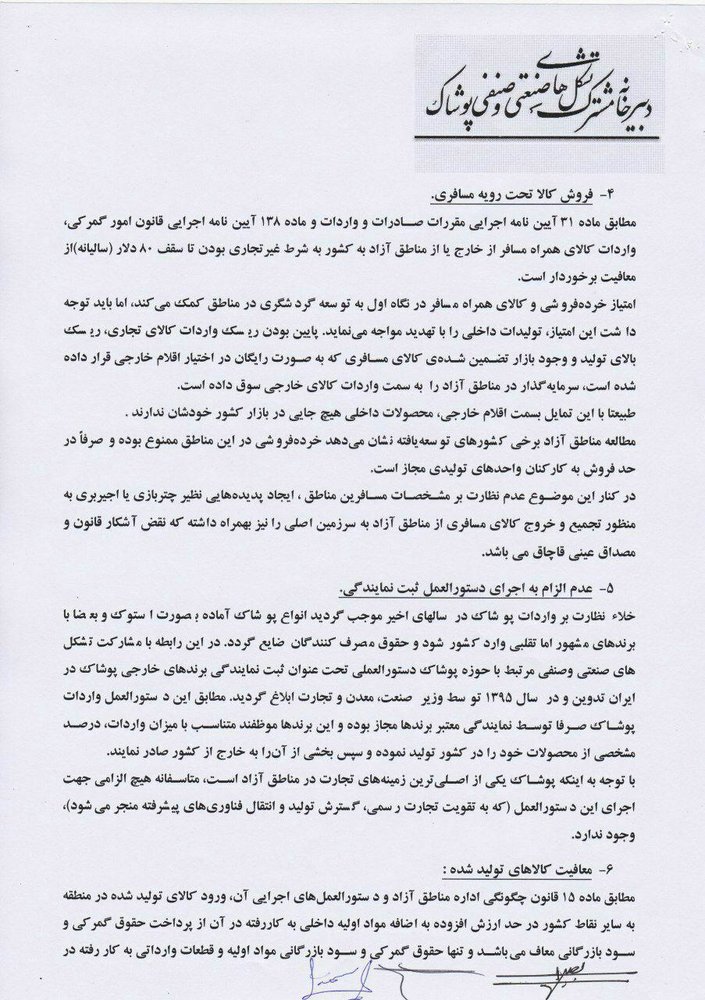 دبیرخانه مشترک تشکل های صنعتی و صنفی پوشاک
۴- فروش کالا تحت رویه مسافری.
مطابق ماده ۳۱ آیین نامه اجرایی مقررات صادرات و واردات و ماده ۱۳۸ آیین نامه اجرایی قانون امور گمرکی،
واردات کالای همراه مسافر از خارج یا از مناطق آزاد به کشور به شرط غیرتجاری بودن تا سقف ۸۰ دلار (سالیانه)از
معافیت برخوردار است.
امتیاز خرده‌فروشی و کالای همراه مسافر در نگاه اول به توسعه گردشگری در مناطق کمک می‌کند، اما باید توجه
داشت این امتیاز، تولیدات داخلی را با تهدید مواجه می‌نماید. پایین بودن ریسک واردات کالای تجاری، ریسک
بالای تولید و وجود بازار تضمین شده‌ی کالای مسافری که به صورت رایگان در اختیار اقلام خارجی قرار داده
شده است، سرمایه‌گذار در مناطق آزاد را به سمت واردات کالای خارجی سوق داده است.
طبیعتا با این تمایل بسمت اقلام خارجی، محصولات داخلی هیچ جایی در بازار کشور خودشان ندارند .
مطالعه مناطق آزاد برخی کشورهای توسعه‌یافته نشان می‌دهد خرده‌فروشی در این مناطق ممنوع بوده و صرفاً در
حد فروش به کارکنان واحدهای تولیدی مجاز است.
در کنار این موضوع عدم نظارت بر مشخصات مسافرین مناطق ، ایجاد پدیده‌هایی نظیر چتربازی یا اجیربری به
منظور تجمیع و خروج کالای مسافری از مناطق آزاد به سرزمین اصلی را نیز بهمراه داشته که نقض آشکار قانون و
مصداق عینی قاچاق می باشد.
۵- عدم الزام به اجرای دستورالعمل ثبت نمایندگی.
خلاء نظارت بر واردات پوشاک در سالهای اخیر موجب گردید انواع پوشاک آماده بصورت استوک و بعضا با
برندهای مشهور اما تقلبی وارد کشور شود و حقوق مصرف کنندگان ضایع گردد. در این رابطه با مشارکت تشکل
های صنعتی وصنفی مرتبط با حوزه پوشاک دستورالعملی تحت عنوان ثبت نمایندگی برندهای خارجی پوشاک در
ایران تدوین و در سال ۱۳۹۵ توسط وزیر صنعت، معدن و تجارت ابلاغ گردید. مطابق این دستورالعمل واردات
پوشاک صرفا توسط نمایندگی معتبر برندها مجاز بوده و این برندها موظفند متناسب با میزان واردات، درصد
مشخصی از محصولات خود را در کشور تولید نموده و سپس بخشی از آن‌را به خارج از کشور صادر نمایند.
با توجه به اینکه پوشاک یکی از اصلی‌ترین زمینه‌های تجارت در مناطق آزاد است، متاسفانه هیچ الزامی جهت
اجرای این دستورالعمل (که به تقویت تجارت رسمی، گسترش تولید و انتقال فناوری‌های پیشرفته منجر می شود)،
وجود ندارد.
۶- معافیت کالاهای تولید شده :
مطابق ماده ۱۵ قانون چگونگی اداره مناطق آزاد و دستورالعمل‌های اجرایی آن، ورود کالای تولید شده در منطقه
به سایر نقاط کشور در حد ارزش افزوده به اضافه مواد اولیه داخلی به کاررفته در آن از پرداخت حقوق گمرکی و
سود بازرگانی معاف می‌باشد و تنها حقوق گمرکی و سود بازرگانی مواد اولیه و قطعات وارداتی به کار رفته در